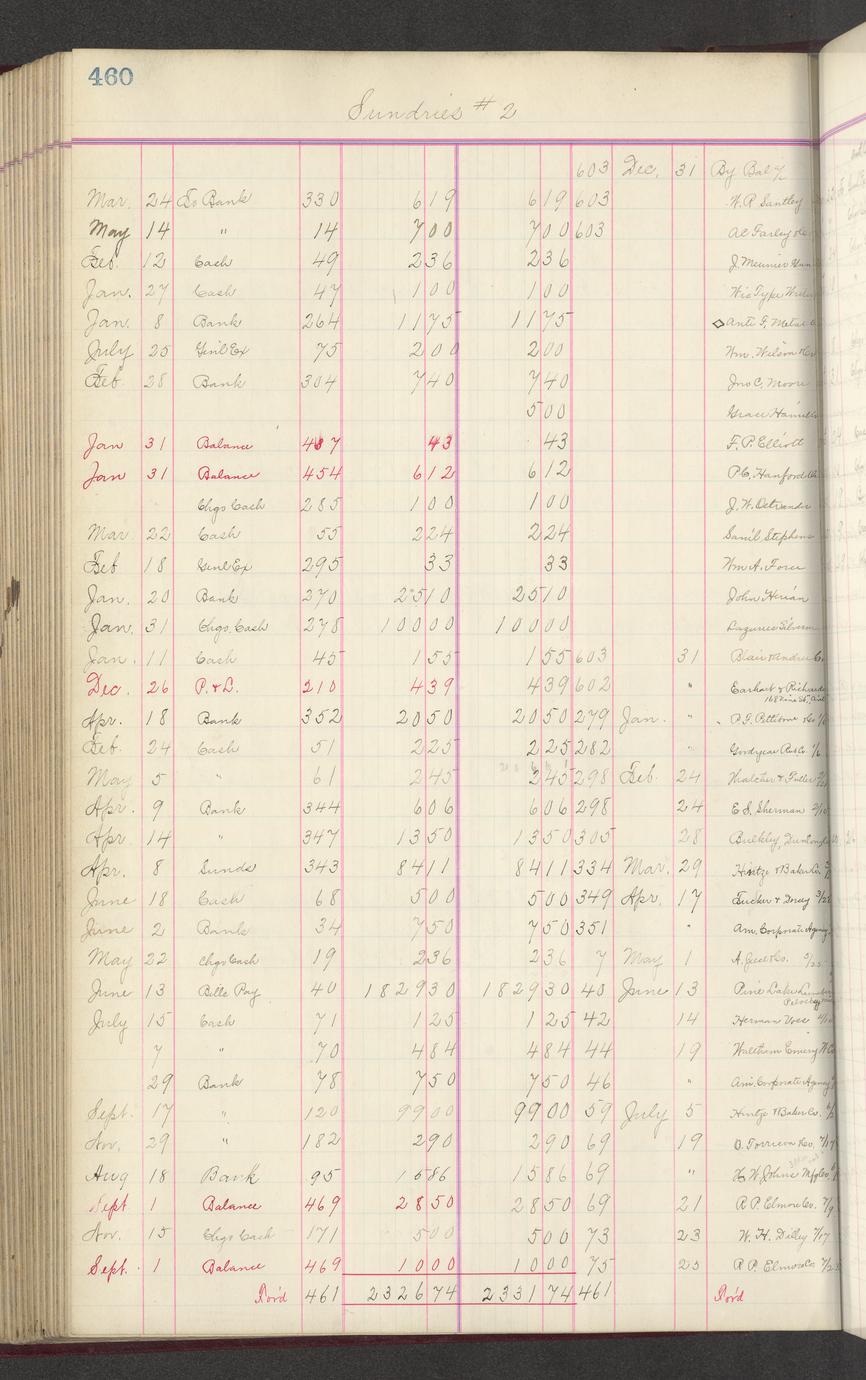 460
Sundries #2
603 Dec. 31 By Bal
Mar. 24 To Bank 330 6 19 6 19 603 W. R. Santley
May 14 " 14 7 00 7 00 603 Farley
Feb. 12 Cash 49 2 36 2 36 J. Meunier
Jan. 27 Cash 47 1 00 1 00 Wis Type
Jan. 8 Bank 264 11 75 11 75 Anti F. Metal
July 25 Genl Ex 75 2 00 2 00 Wm. Wilson
Feb. 28 Bank 304 7 40 7 40 Jno C. Moore
5 00 Grace
Jan 31 Balance 467 43 43 F. P. Elliott
Jan 31 Balance 454 6 12 6 12 P. C. Hanford
Chgs Cash 285 1 00 1 00 J. W.
Mar 22 Cash 55 2 24 2 24 Saml Stephens
Feb 18 Genl Ex 295 33 33 Wm A. Force
Jan. 20 Bank 270 25 10 25 10 John
Jan. 31 Chgs. Cash 278 100 00 100 00 Silverm
Jan. 11 Cash 45 1 55 1 55 603 31 Blair
Dec. 26 P. & L. 210 4 39 4 39 602 " Earhart & Richards
Apr. 18 Bank 352 20 50 20 50 279 Jan. " P. F. Pettibone & Co 1/
Feb. 24 Cash 51 2 25 2 25 282 " Goodyear Rub Co. 1/6
May 5 " 61 2 45 2 45 298 Feb. 24 Thatcher & Fuller
Apr. 9 Bank 344 6 06 6 06 298 24 E. S. Sherman 2/10
Apr 14 " 347 13 50 13 50 305 28 Bulkley, Dunton
Apr. 8 Sunds 343 84 11 84 11 334 Mar. 29 Hintze & Baker Co.
June 18 Cash 68 5 00 5 00 349 Apr. 17 Tucker & Dorsey 3/28
June 2 Bank 34 7 50 7 50 351 " Am. Corporate Agency
May 22 Chgs Cash 19 2 36 2 36 7 May 1 A. & Co.
June 13 Bills Pay 40 1829 30 1829 30 40 June 13 Pine Lake Lumber
July 15 Cash 71 1 25 1 25 42 14 Herman Voss
7 " 70 4 84 4 84 44 19 Waltham Emery W Co
29 Bank 78 7 50 7 50 46 " Am. Corporate Agency
Sept. 17 " 120 99 00 99 00 59 July 5 Hintze & Baker Co.
Nov. 29 " 182 2 90 2 90 69 19 O. Torrison Co. 7/17
Aug 18 Bank 95 15 86 15 86 69 " H. W. Johns Mfg Co.
Sept 1 Balance 469 28 50 28 50 69 21 R. P. Elmore Co. 7/9
Nov. 15 Chgs Cash 171 5 00 5 00 73 23 W. H. Dilley 7/17
Sept. 1 Balance 469 10 00 10 00 75 25 R. P. Elmore Co 7/2
For'd 461 2326 74 2331 74 461 For'd